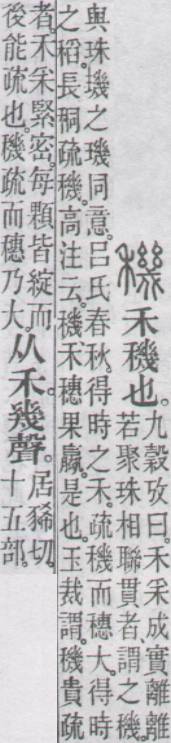 穖 禾穖也。
九穀攷曰。禾采成實離離
若聚珠相聯貫者謂之穖。
與珠璣之璣同意。呂氏春秋。得時之禾。疏穖而穗大。得時
之稻。長秱疏穖。高注云。穖、禾穗果蠃是也。玉裁謂。穖貴疏
者。禾采緊密。每顆皆綻而
後能疏也。穖疏而穗乃大。
从禾。幾聲。
居狶切。
十五部。